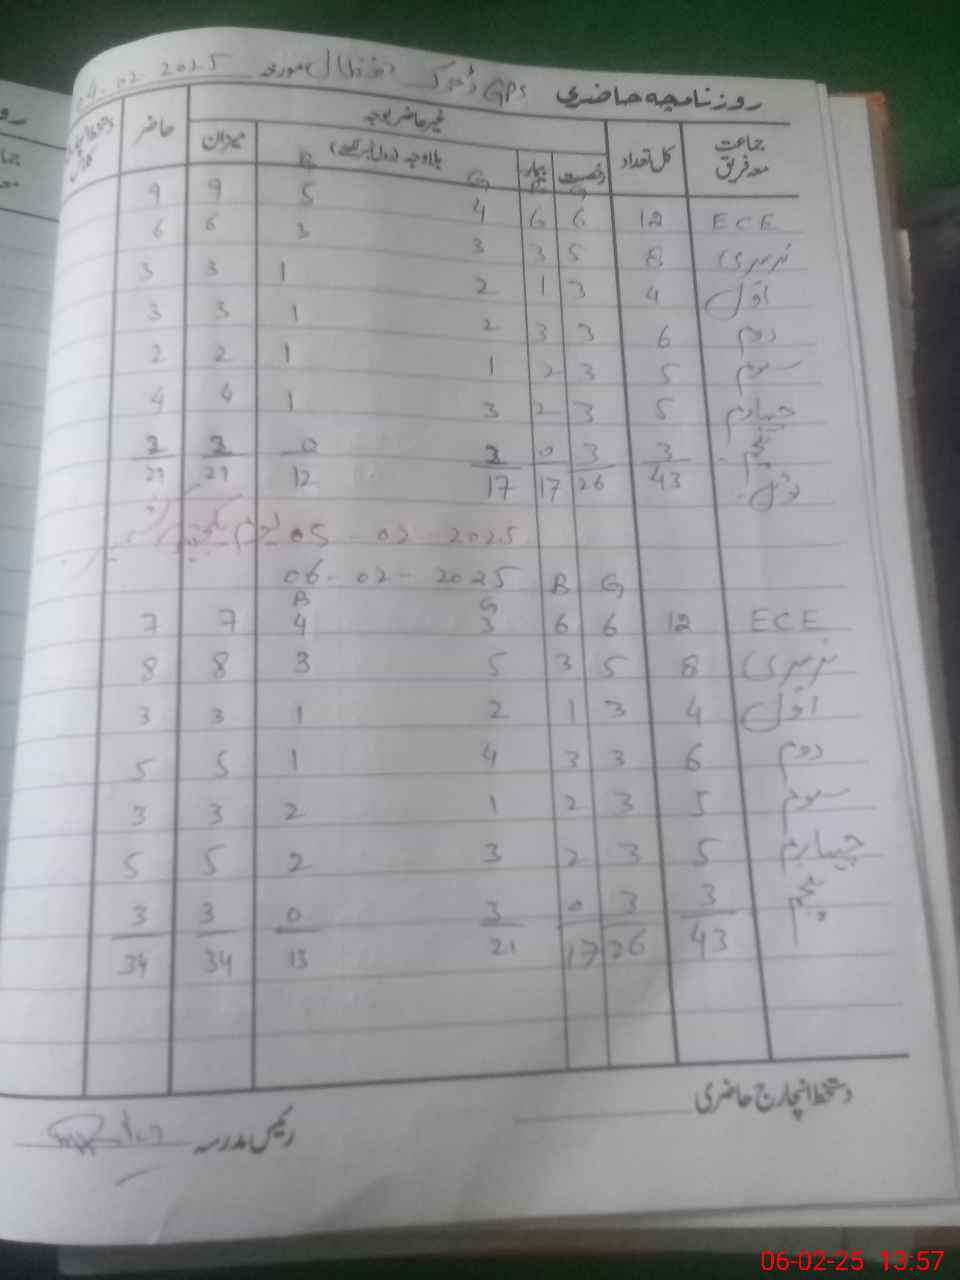 روزنامچہ حاضری GPS ڈھوک مورخہ 04-02-2025
جماعت معہ فریق کل تعداد غیر حاضر بوجہ حاضر
رخصت بیمار بلاوجہ (رول نمبر لکھیے) میزان
G B
ECE 12 6 6 4 5 9 9
نرسری 8 5 3 3 3 6 6
اول 4 3 1 2 1 3 3
دوم 6 3 3 2 1 3 3
سوم 5 3 2 1 1 2 2
چہارم 5 3 2 3 1 4 4
پنجم 3 3 0 2 0 2 2
ٹوٹل 43 26 17 17 12 29 29
05-02-2025 یوم یکجہتی کشمیر
G B 06-02-2025
G B
ECE 12 6 6 3 4 7 7
نرسری 8 5 3 5 3 8 8
اول 4 3 1 2 1 3 3
دوم 6 3 3 4 1 5 5
سوم 5 3 2 1 2 3 3
چہارم 5 3 2 3 2 5 5
پنجم 3 3 0 3 0 3 3
43 26 17 21 13 34 34
دستخط انچارج حاضری
رئیس مدرسہ
06-02-25 13:57